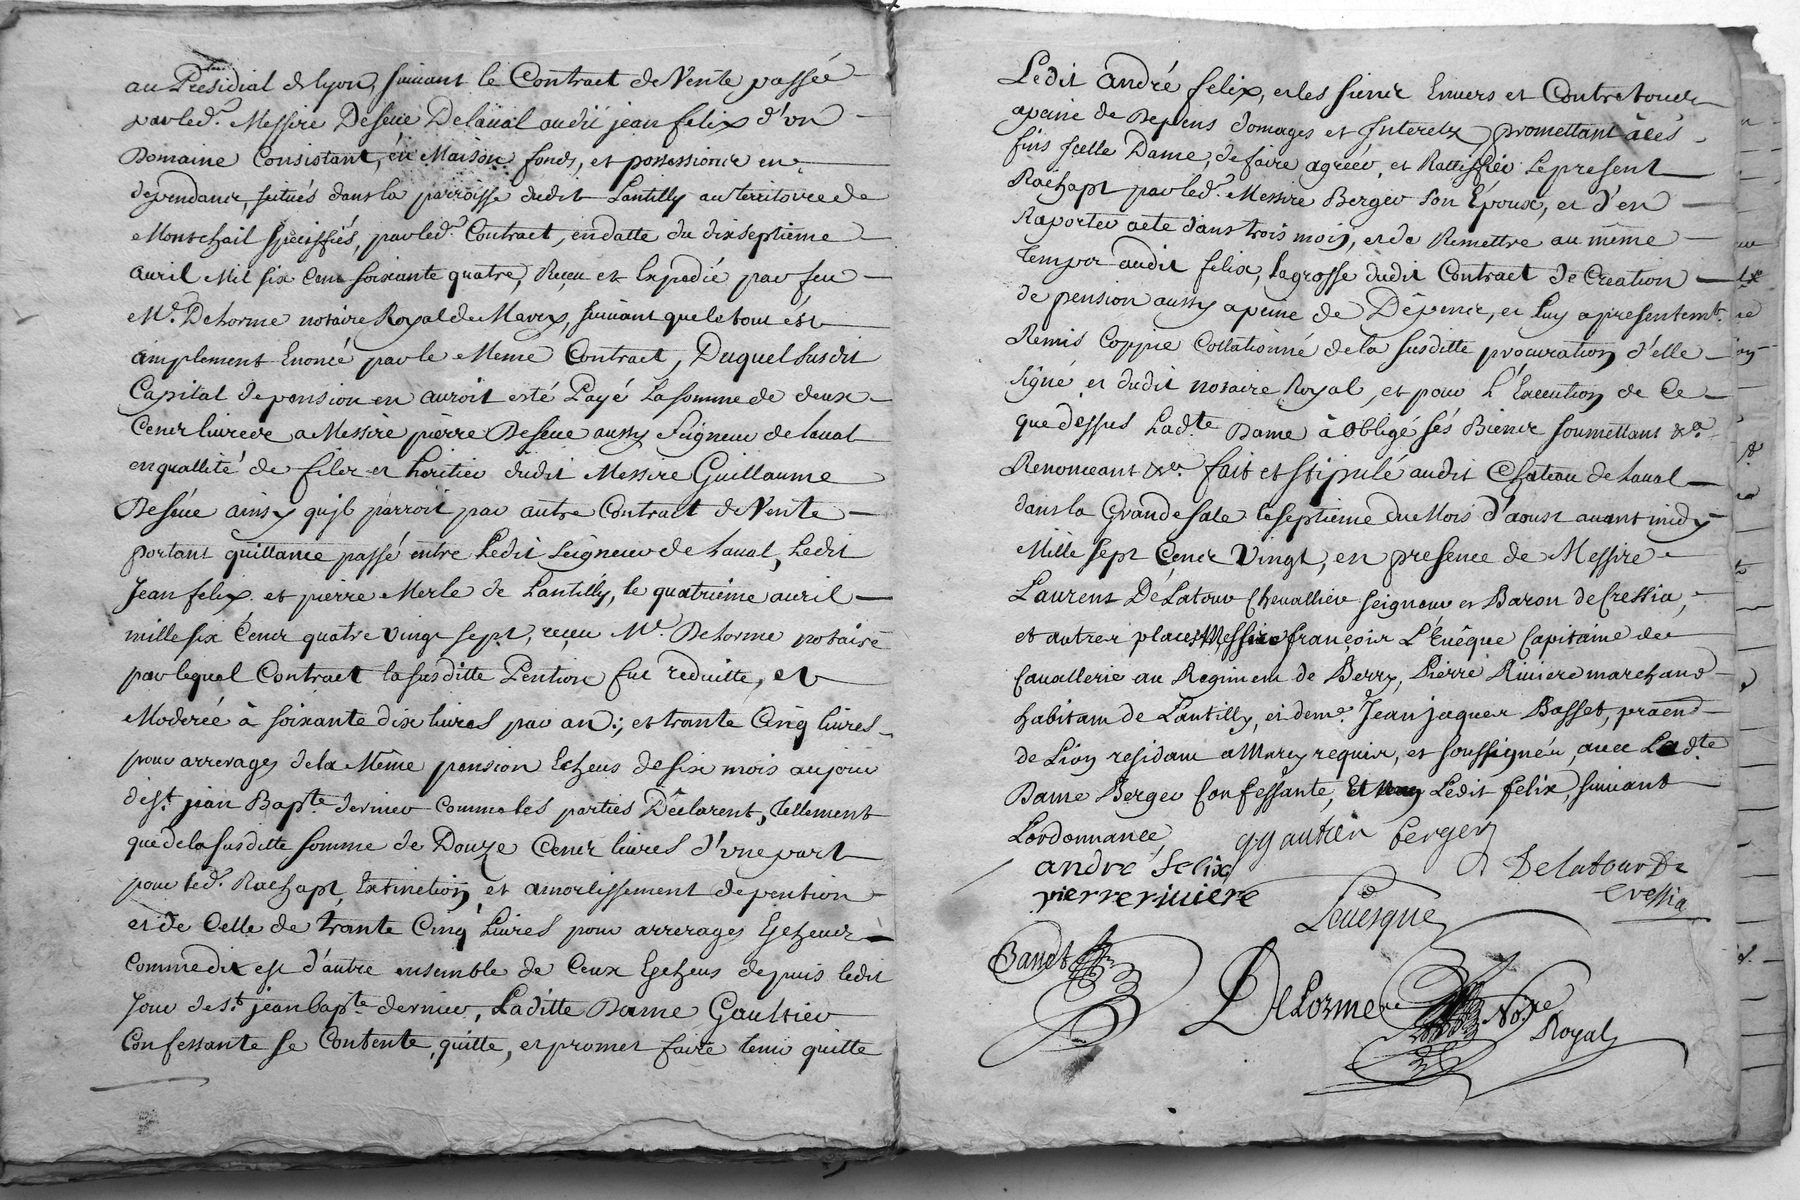 au Presidial de lyon, suivant le Contract de Vente passée
par led.t Messire De Seve De laval audit jean felix d'un
Domaine Consistant, en Maison fonds, et possessions en
dependants, scitués dans la parroisse dudit Lantilly au territoire de
Montchail speciffiés, par led.t Contract, en datte du dixseptieme
avril Mil six Cens soixante quatre, Reçeu et Expedié par feu
M.e Delorme notaire Royal de , suivant que le tout ést
amplement Enoncé par le Meme Contract, Duquel susdit
Capital de pension en auroit esté Payé La somme de deux
Cens livres a Messire pierre De seve aussy Seigneur de laval
en quallité de fils et heritier dudit Messire Guillaume
De séve ainsy qu'jl parroit par autre Contract de Vente
portant quittance passé entre Ledit Seigneur de Laval, Ledit
Jean felix et pierre Merle de Lantilly, le quatrième avril
mille six Cens quatre vingt sept, reçeu M.e Delorme notaire
par lequel Contract la susditte Pention fut reduitte, et
Moderée à soixante dix livres par an; et trante Cinq livres
pour arrerages de la Même pension Echeus de six mois au jour
de S.t jean Bap.te dernier comme les parties Déclarent, tellement
que de la susditte somme de Douze Cens livres d'une part
pour led.t Rachapt, Extinction, et amortissement de pention
et de Celle de trante Cinq Livres pour arrerages Echeus
comme dit est d'autre ensemble de Ceux Echeus depuis ledit
Jour de S.t jean bap.te dernier, Laditte Dame Gaultier
Confessante se Contente, quitte, et promet faire tenir quitte
Ledit André felix, et les siens Envers et Contre tous
a peine de Depens domages et Interetz promettant à ces
fins jcelle Dame, de faire agréer, et Rattiffier Le present
Rachapt par led.t Messire Berger son Époux, et d'en
Raporter acte dans trois mois, et de Remettre au même
Temps audit felix, la grosse dudit Contract de Creation
de pension aussy a peine de Dépens, et Luy a presentem.t
Remis Coppie Collationné de la susditte procuration d'elle
signé et dudit notaire Royal, et pour l'Execution de Ce
que dessus Lad.te Dame à obligé sés Biens soumettant &a
Renonceant &a fait et stipulé audit Chateau de Laval
dans la Grande sale le septieme du Mois d'aoust avant midy
Mille sept Cens Vingt, en presence de Messire
Laurens De Latour Chevallier seigneur et Baron de Cressia,
et autres places Messire françois L'Evêque Capitaine de
Cavallerie au Regiment de Berry, Pierre Riviere marchand
habitant de Lantilly, et Jean jaques Basset,
de Lion residant a requis, et soussignés, avec Lad.te
Dame Berger Confessante, Et Ledit felix, suivant
L'ordonnance,
andré felix
berger
De latour De
Cressia
pierre riviere
Levesque
DeLorme
No.re
Royal